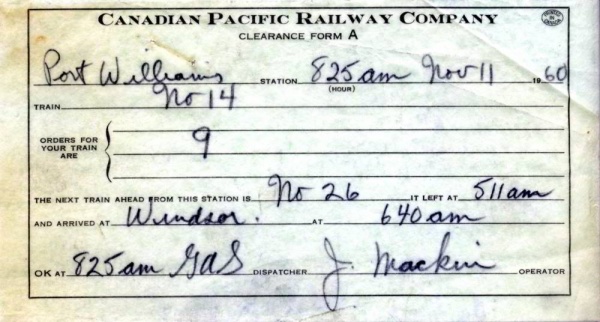 CANADIAN PACIFIC RAILWAY COMPANY
CLEARANCE FORM A
Port Williams STATION 825am Nov 11 1960
(HOUR)
TRAIN No 14
ORDERS FOR YOUR TRAIN ARE 9
THE NEXT TRAIN AHEAD FROM THIS STATION IS No 26 IT LEFT AT 511am
AND ARRIVED AT Windsor. AT 640am
OK AT 825am GAS DISPATCHER J. Mackin OPERATOR